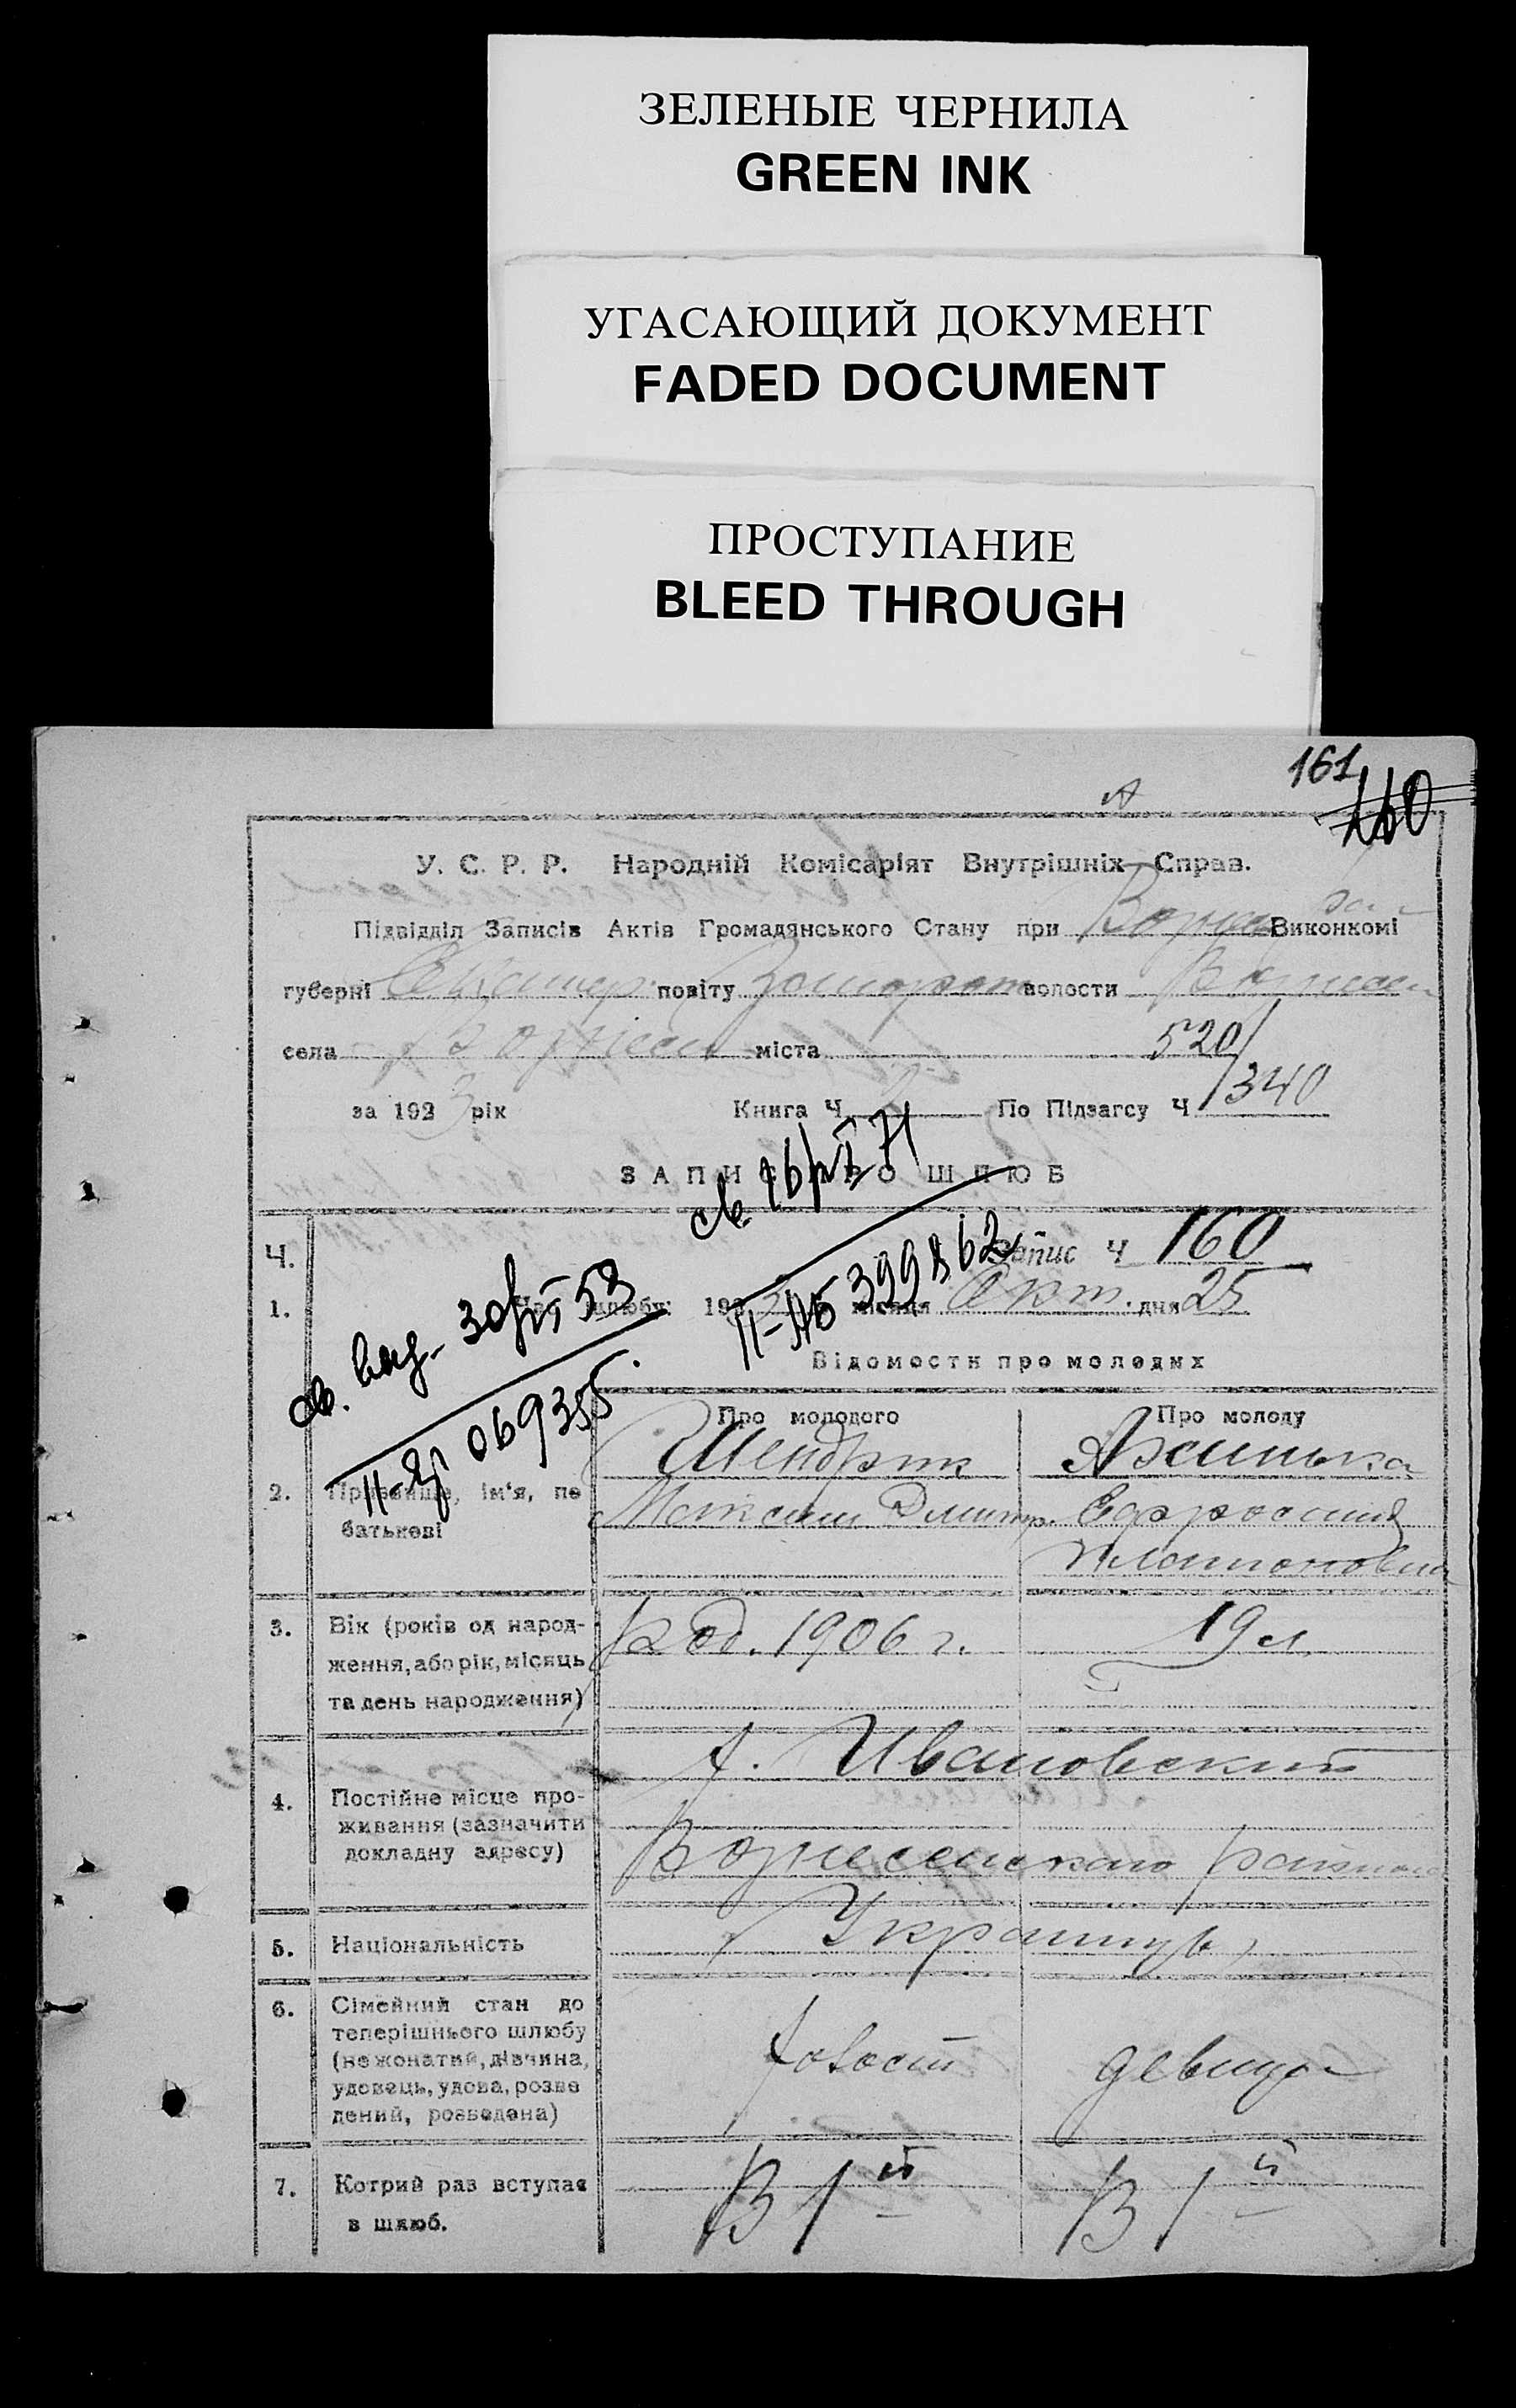 ЗЕЛЕНЫЕ ЧЕРНИЛА
GREEN INK
УГАСАЮЩИЙ ДОКУМЕНТ
FADED DOCUMENT
ПРОСТУПАНИЕ
BLEED THROUGH
161
160
У. С. Р. Р. Народній Комісаріят Внутрішніх Справ.
Підвідділ Записів Актів Громадянського Стану при Виконкомі
губерні Екатер. повіту волости
села міста 520/
за 1923 рік Книга Ч. По Підзагсу Ч 340
ЗАПИС ПРО ШЛЮБ
Ч. Запис Ч 160
1. Час шлюбу: 192 місяця Окт. дня 25
св. 30/VI 53
II-069355.
II-АБ 399862
Відомости про молодих
Про молодого Про молоду
Шендрик
2. Прізвище, ім'я, по Максим Дмитр. Ефросиния
батькові Платоновна
3. Вік (років од народ- Род. 1906 г. 19 л
ження, або рік, місяць
та день народження)
х. Ивановский
4. Постійне місце про-
живання (зазначити
докладну адресу) Вознесенскаго района
5. Національність Украинцы
6. Сімейний стан до
теперішнього шлюбу
(не жонатий, дівчина, холост девица
удовець, удова, розве
дений, розведена)
7. Котрий раз вступає В 1й В 1й
в шлюб.